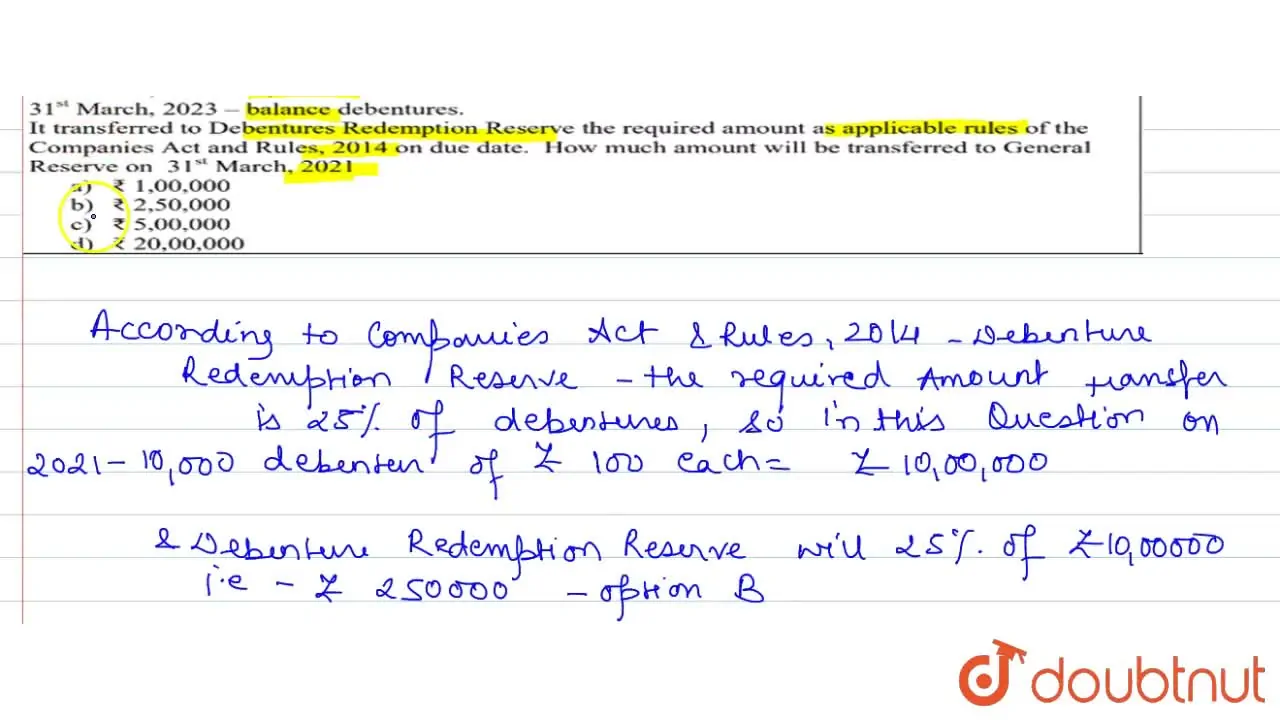 31st March, 2023 – balance debentures.
It transferred to Debentures Redemption Reserve the required amount as applicable rules of the
Companies Act and Rules, 2014 on due date. How much amount will be transferred to General
Reserve on 31st March, 2021
a) ₹ 1,00,000
b) ₹ 2,50,000
c) ₹ 5,00,000
d) ₹ 20,00,000
According to Companies Act & Rules, 2014 - Debenture
Redemption Reserve - the required Amount transfer
is 25% of debentures, so in this Question on
2021 - 10,000 debenten of ₹ 100 each = ₹ 10,00,000
& Debenture Redemption Reserve will 25% of ₹ 10,00000
i.e - ₹ 250000 - option B
doubtnut